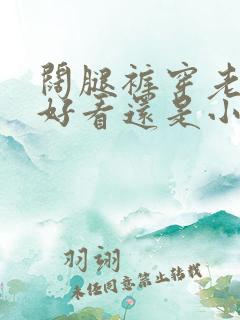 闊腿裤穿老
好看還是小
羽翊
未经同意禁止转载